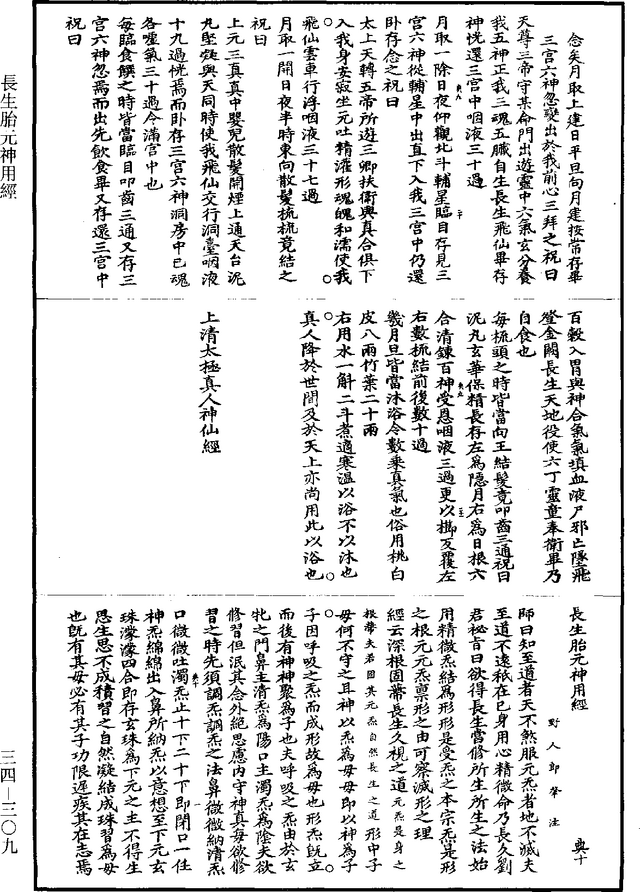 念矣月取上建日平旦向月建按常存畢
三宮六神忽變出於我前心三拜之祝曰
天尊三帝守某命門出遊靈中六氣玄分養
我五神正我三魂五臟自生長生飛仙畢存
神恍還三宮中咽液三十過
月取一除日夜仰觀北斗輔星臨目存見三
宮六神從輔星中出直下入我三宮中仍還
卧存念之祝曰
太上天轉五帝所遊三卿扶衛與真合俱下
入我身安寂坐元吐精灌形魂魄和濡使我
飛仙雲車行浮咽液三十七過
月取一開日夜半時東向散髮梳梳竟結之
祝曰
上元三真真中嬰兒散髮開煙上通天台泥
丸堅疑與天同時使我飛仙交行洞臺咽液
十九過恍焉而卧存三宮六神洞房中已魂
各噓氣三十過令滿宮中也
每臨食饌之時皆當臨目叩齒三通又存三
宮六神忽焉而出先飲食畢又存還三宮中
祝曰
百穀入胃與神合氣氣填血液尸邪亡墜飛
登金闕長生天地役使六丁靈童奉衛畢乃
自食也
每梳頭之時皆當向王結髮竟叩齒三通祝曰
泥丸玄華保精長存左為隱月右為日根六
合清鍊百神受恩咽液三過更以櫛反覆左
右數梳結前後數十過
幾月旦皆當沐浴令數乘真氣也俗用桃白
皮八兩竹葉二十兩
右用水一斛二斗煮適寒溫以浴不以沐也
真人降於世間及於天上亦尚用此以浴也
上清太極真人神仙經
長生胎元神用經
野人郎肇注
師曰知至道者天不煞服元炁者地不滅夫
至道不遠秖在已身用心精微命乃長久劉
君祕言曰欲得長生當修所生所生之法始
用精微炁結為形形是受炁之本宗炁是形
之根元元炁稟形之由可察減形之理
經云深根固蔕長生久視之道元炁是身之
根蔕夫若固其元炁自然長生之道形中子
母何不守之耳神以炁為母母即以神為子
子因呼吸之炁而成形故為母也形炁既立
而後有神神聚為子也夫呼吸之炁由於玄
牝之門鼻主清炁為陽口主濁炁為陰夫欲
修習但泯其念外絕思慮內守神真每欲修
習之時先須調炁調炁之法鼻微微納清炁
口微微吐濁炁止十下二十下即閉口一任
神炁綿綿出入鼻所納炁以意想至下元玄
珠濛濛四合即存玄珠為下元之主不得生
思生思不成積習之自然凝結成珠習為母
也既有其母必有其子功限遲疾其在志焉
長生胎元神用經
三四—三〇九